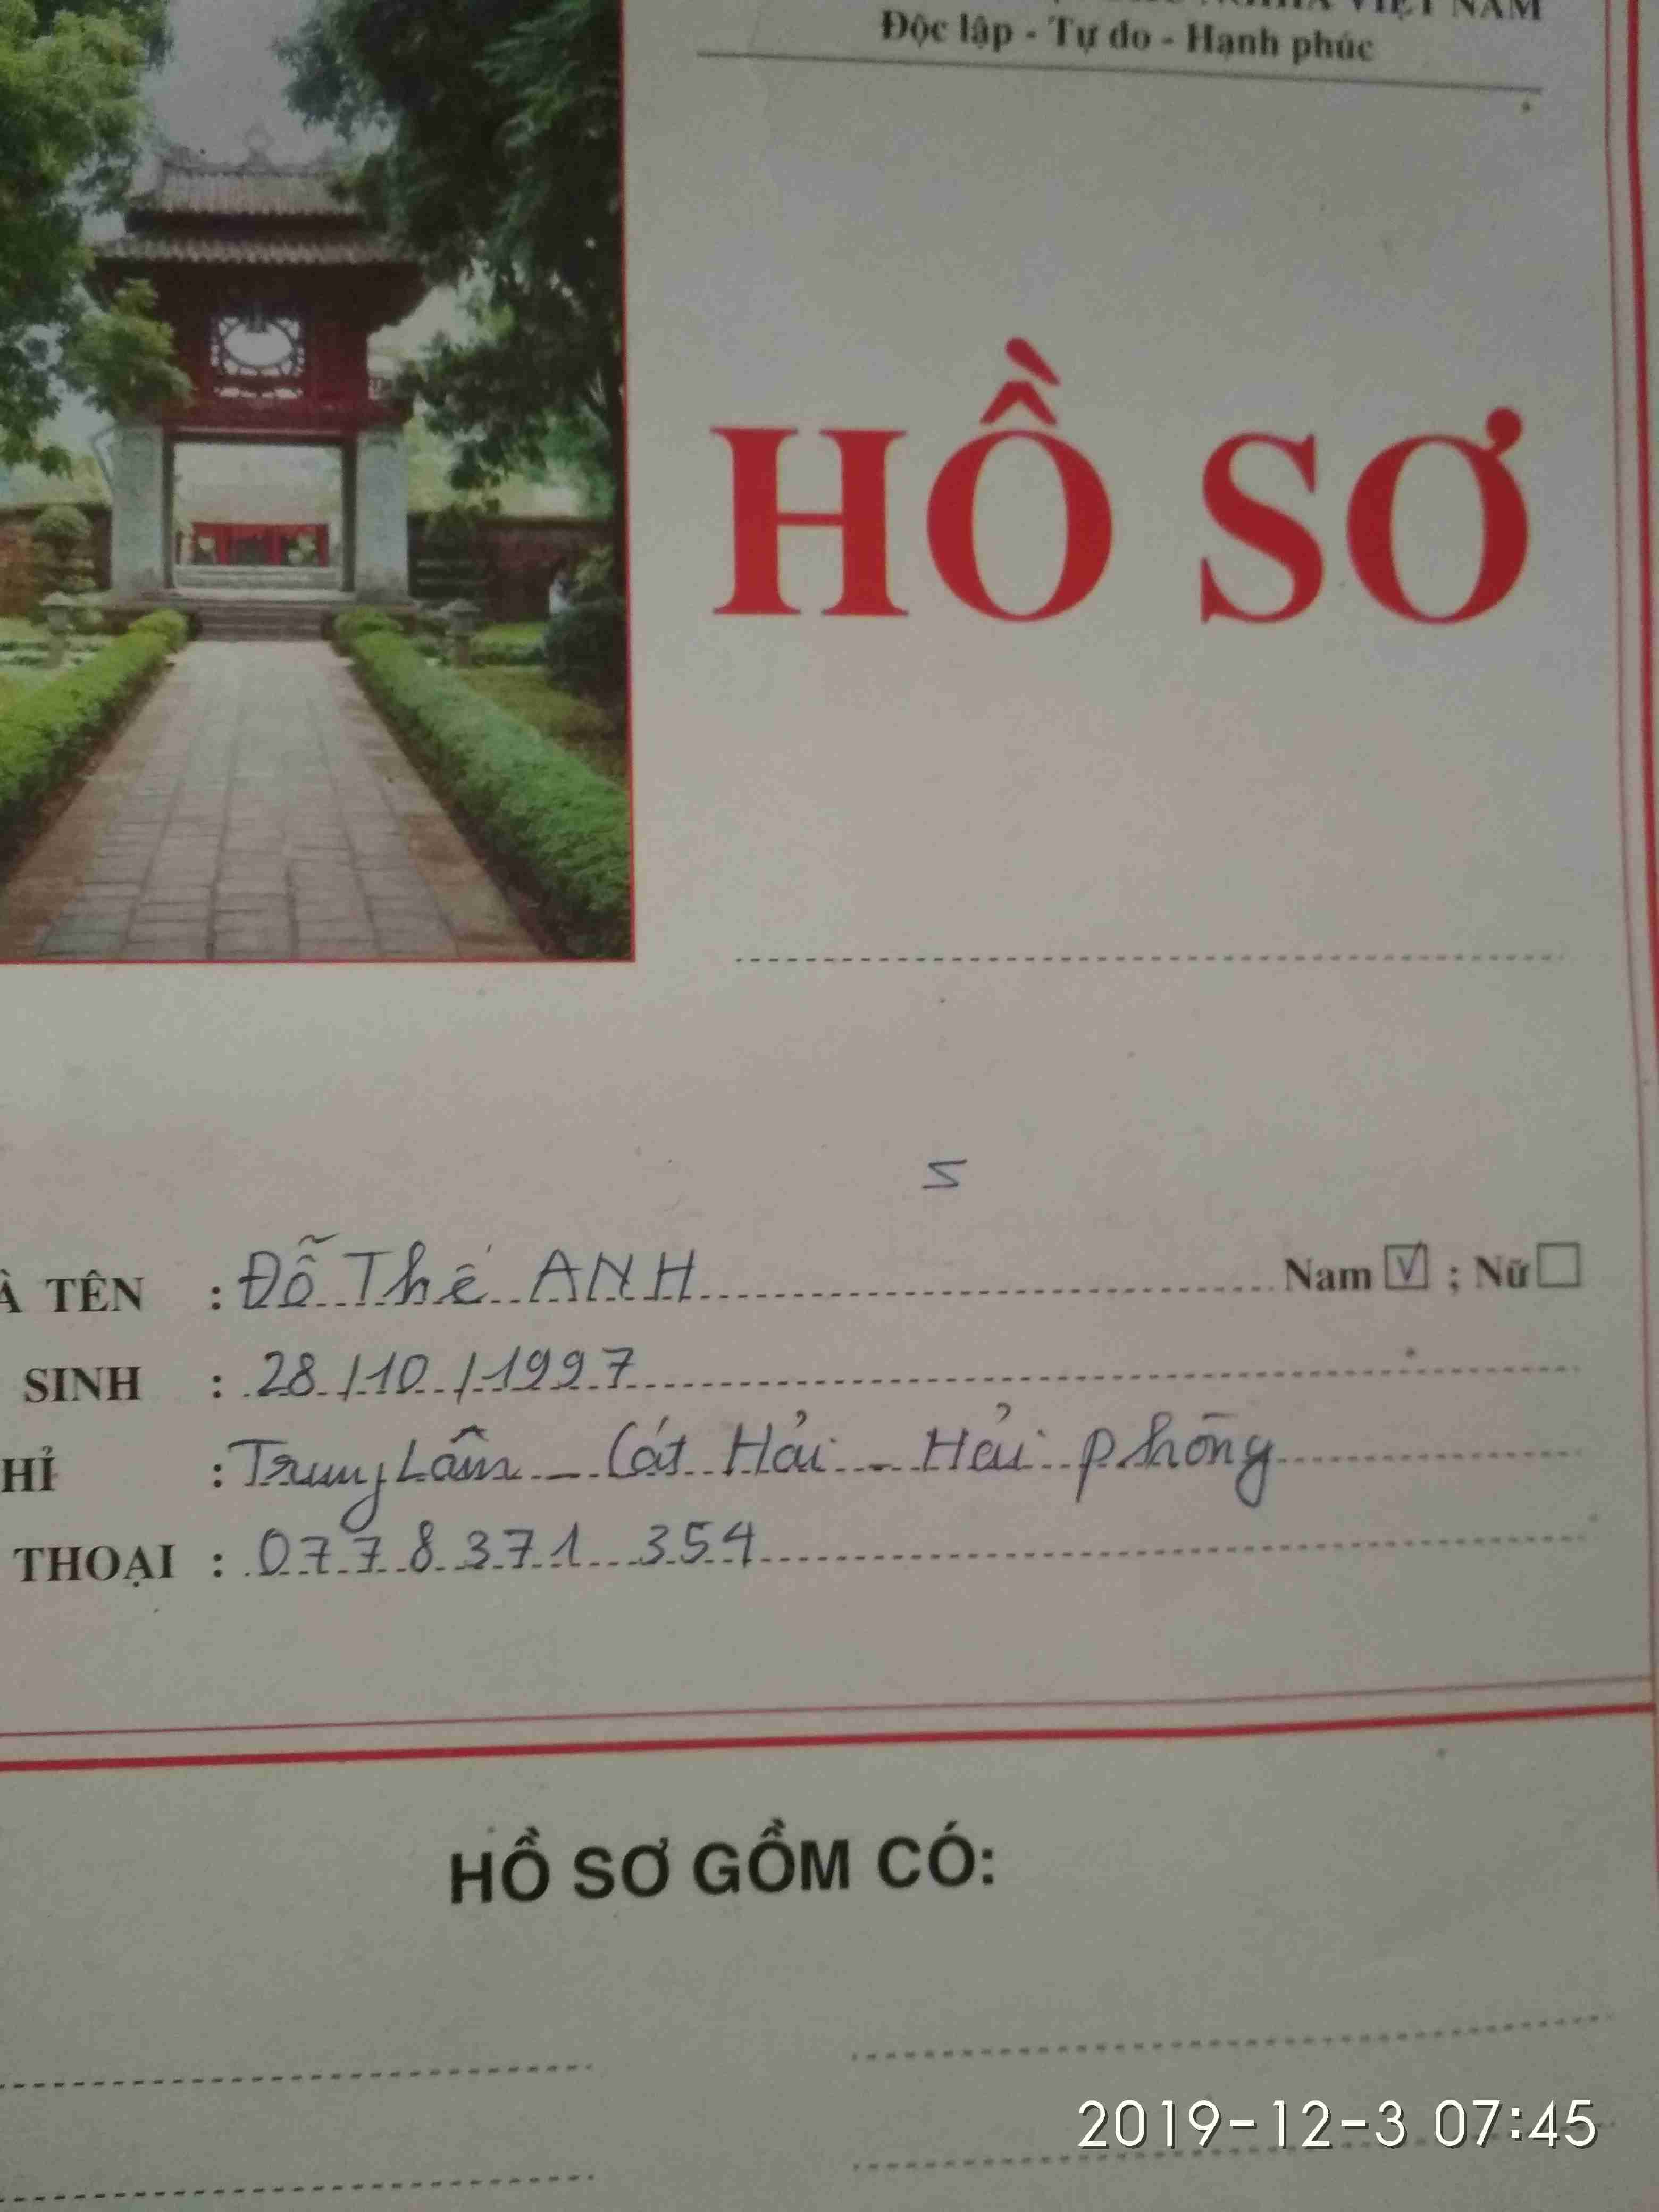 VIỆT NAM
Độc lập - Tự do - Hạnh phúc
HỒ SƠ
5
À TÊN : Đỗ Thế ANH Nam ☑ ; Nữ ☐
SINH : 28/10/1997
HỈ : Trung Lâm - Cát Hải - Hải phòng
THOẠI : 0778371 354
HỒ SƠ GỒM CÓ:
2019-12-3 07:45